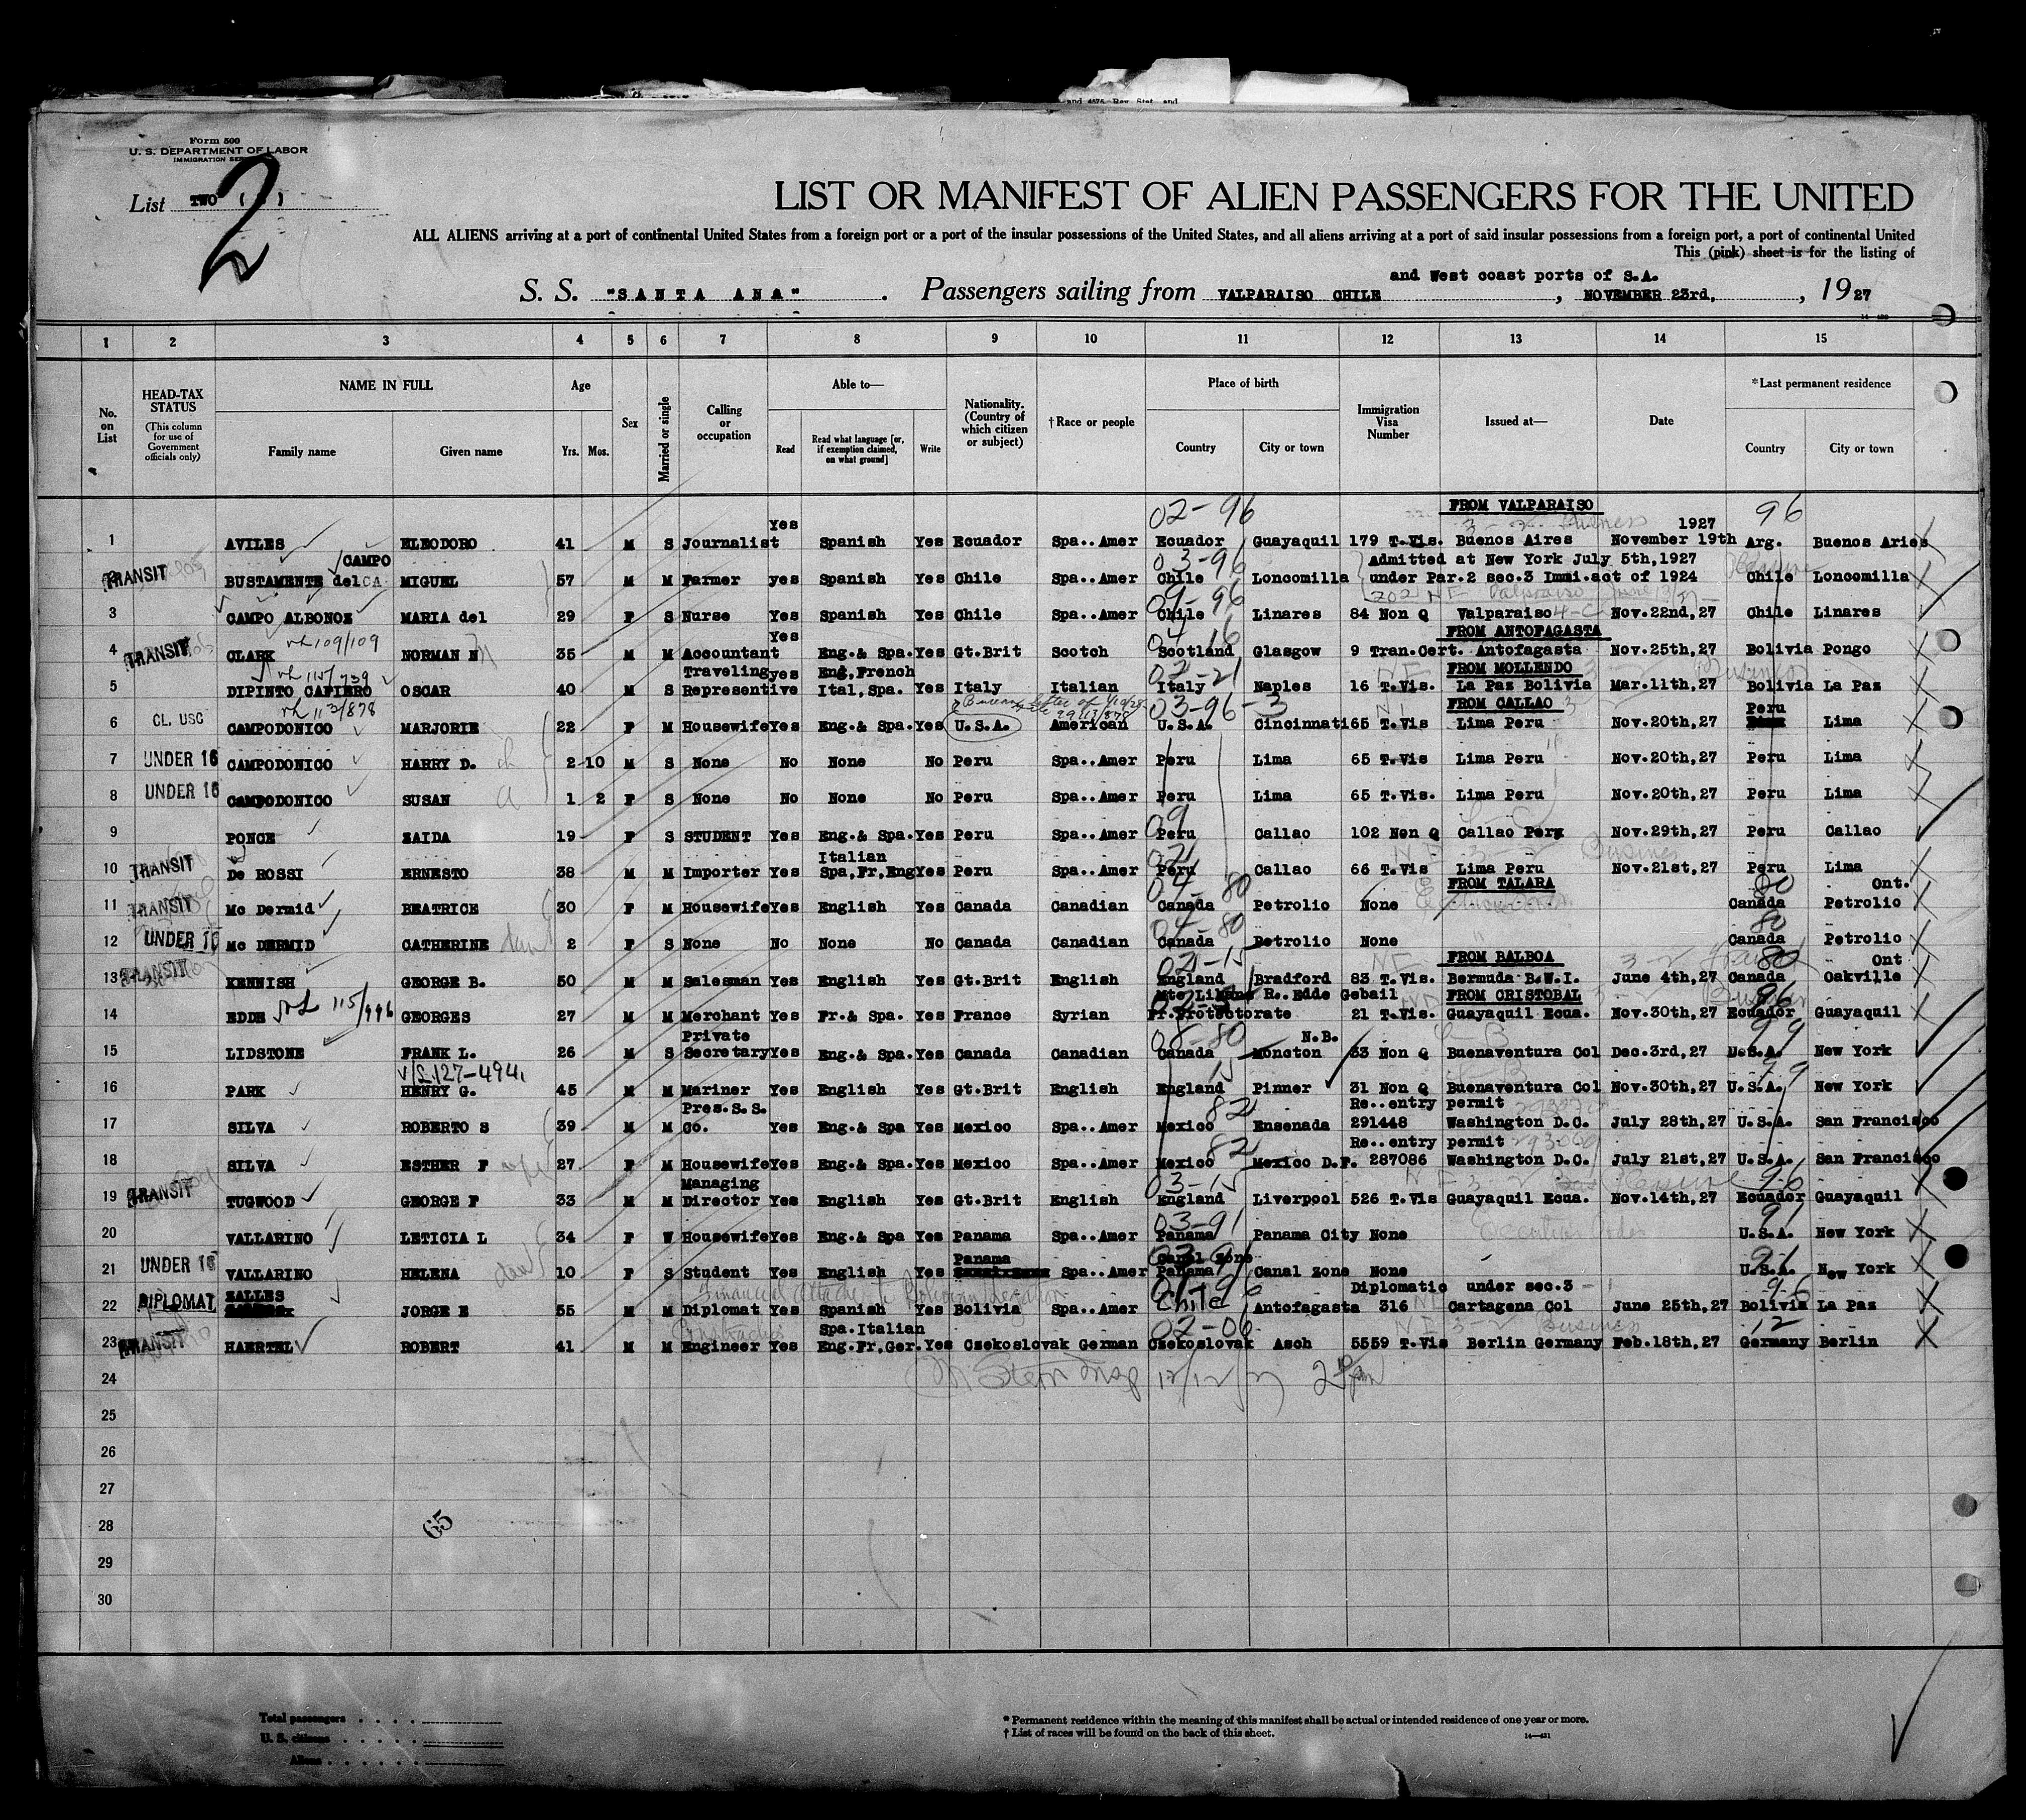 and 4575 Rev. Stat. and
Form 500
U. S. DEPARTMENT OF LABOR
IMMIGRATION
List TWO ( )
2
LIST OR MANIFEST OF ALIEN PASSENGERS FOR THE UNITED
ALL ALIENS arriving at a port of continental United States from a foreign port or a port of the insular possessions of the United States, and all aliens arriving at a port of said insular possessions from a foreign port, a port of continental United
This (pink) sheet is for the listing of
and West coast ports of S.A.
S. S. "SANTA ANA". Passengers sailing from VALPARAISO CHILE, NOVEMBER 23rd., 1927
1 2 3 4 5 6 7 8 9 10 11 12 13 14 15
No. on List
HEAD-TAX STATUS (This column for use of Government officials only)
NAME IN FULL Family name Given name
Age Yrs. Mos.
Sex
Married or single
Calling or occupation
Able to— Read Read what language [or, if exemption claimed, on what ground] Write
Nationality. (Country of which citizen or subject)
†Race or people
Place of birth Country City or town
Immigration Visa Number
Issued at—
Date
*Last permanent residence Country City or town
FROM VALPARAISO
02-96 96
Yes 1927
1 AVILES ELEODORO 41 M S Journalist Spanish Yes Ecuador Spa..Amer Ecuador Guayaquil 179 T.Vis. Buenos Aires November 19th Arg. Buenos Aries
CAMPO 03-96 Admitted at New York July 5th,1927
TRANSIT BUSTAMENTE del CA MIGUEL 57 M M Farmer yes Spanish Yes Chile Spa..Amer Chile Loncomilla under Par.2 sec.3 Immi.act of 1924 Chile Loncomilla
09-96 202 NF Valparaiso June 13/27
3 CAMPO ALBONOZ MARIA del 29 F S Nurse Yes Spanish Yes Chile Spa..Amer Chile Linares 84 Non Q Valparaiso 4-C Nov.22nd,27 Chile Linares
109/109 Yes 04-16 FROM ANTOFAGASTA
4 TRANSIT CLARK NORMAN N 35 M M Accountant Eng.& Spa. Yes Gt.Brit Scotch Scotland Glasgow 9 Tran.Cert. Antofagasta Nov.25th,27 Bolivia Pongo
115/739 Traveling yes Eng,French 02-21 FROM MOLLENDO
5 DIPINTO CAFIERO OSCAR 40 M S Representive Ital,Spa. Yes Italy Italian Italy Naples 16 T.Vis. La Paz Bolivia Mar.11th,27 Bolivia La Paz
113/878 99113/878 03-96-3 FROM CALLAO Peru
6 CL. USC CAMPODONICO MARJORIE 22 F M Housewife Yes Eng.& Spa. Yes U.S.A. American U.S.A. Cincinnati 65 T.Vis Lima Peru Nov.20th,27 Lima
7 UNDER 16 CAMPODONICO HARRY D. ch 2 10 M S None No None No Peru Spa..Amer Peru Lima 65 T.Vis Lima Peru Nov.20th,27 Peru Lima
8 UNDER 16 CAMPODONICO SUSAN 1 2 F S None No None No Peru Spa..Amer Peru Lima 65 T.Vis. Lima Peru Nov.20th,27 Peru Lima
09
9 PONCE ZAIDA 19 F S STUDENT Yes Eng.& Spa. Yes Peru Spa..Amer Peru Callao 102 Non Q Callao Peru Nov.29th,27 Peru Callao
Italian 021 NF 3-2 Business
10 TRANSIT De ROSSI ERNESTO 38 M M Importer Yes Spa,Fr,Eng Yes Peru Spa..Amer Peru Callao 66 T.Vis Lima Peru Nov.21st,27 Peru Lima
04-80 FROM TALARA 80 Ont.
11 TRANSIT Mc Dermid BEATRICE 30 F M Housewife Yes English Yes Canada Canadian Canada Petrolio None Canada Petrolio
04-80 80
12 UNDER 16 Mc DERMID CATHERINE dau 2 F S None No None No Canada Canadian Canada Petrolio None Canada Petrolio
02-15 FROM BALBOA 80 Ont
13 TRANSIT KENNISH GEORGE B. 50 M M Salesman Yes English Yes Gt.Brit English England Bradford 83 T.Vis. Bermuda B.W.I. June 4th,27 Canada Oakville
115/996 Mte Libano R. Edde Gebail FROM CRISTOBAL 96
14 EDDE GEORGES 27 M M Merchant Yes Fr.& Spa. Yes France Syrian Fr.Protectorate 21 T.Vis. Guayaquil Ecua. Nov.30th,27 Ecuador Guayaquil
Private 08-80 N.B. 99
15 LIDSTONE FRANK L. 26 M S Secretary Yes Eng.& Spa. Yes Canada Canadian Canada Moncton 33 Non Q Buenaventura Col Dec.3rd,27 U.S.A. New York
127-494 15 99
16 PARK HENRY G. 45 M M Mariner Yes English Yes Gt.Brit English England Pinner 31 Non Q Buenaventura Col Nov.30th,27 U.S.A. New York
Pres.S.S. 82 Re..entry permit
17 SILVA ROBERTO S 39 M M Co. Yes Eng.& Spa Yes Mexico Spa..Amer Mexico Ensenada 291448 Washington D.C. July 28th,27 U.S.A. San Francisco
82 Re..entry permit
18 SILVA ESTHER F wife 27 F M Housewife Yes Eng.& Spa. Yes Mexico Spa..Amer Mexico Mexico D.F. 287086 Washington D.C. July 21st,27 U.S.A. San Francisco
Managing 03-15 NF 3-2 Pleasure 96
19 TRANSIT TUGWOOD GEORGE F 33 M M Director Yes English Yes Gt.Brit English England Liverpool 526 T.Vis Guayaquil Ecua. Nov.14th,27 Ecuador Guayaquil
03-91 91
20 VALLARINO LETICIA L 34 F W Housewife Yes Eng.& Spa Yes Panama Spa..Amer Panama Panama City None U.S.A. New York
Panama Canal Zone 91
21 UNDER 16 VALLARINO HELENA dau 10 F S Student Yes English Yes Spa..Amer Panama Canal Zone None U.S.A. New York
ZALLES Financial Attache to Bolivian Legation 01-96 Diplomatic under sec.3 96
22 DIPLOMAT JORGE E 55 M M Diplomat Yes Spanish Yes Bolivia Spa..Amer Chile Antofagasta 316 Cartagena Col June 25th,27 Bolivia La Paz
Spa.Italian 02-06 NF 3-2 Business 12
23 TRANSIT HAERTEL ROBERT 41 M M Engineer Yes Eng.Fr,Ger. Yes Czekoslovak German Czekoslovak Asch 5559 T.Vis Berlin Germany Feb.18th,27 Germany Berlin
24 Stern Insp 12/12/27 2 pm
25
26
27
28 65
29
30
Total passengers
U. S. citizens
Aliens
* Permanent residence within the meaning of this manifest shall be actual or intended residence of one year or more.
† List of races will be found on the back of this sheet.
14—431